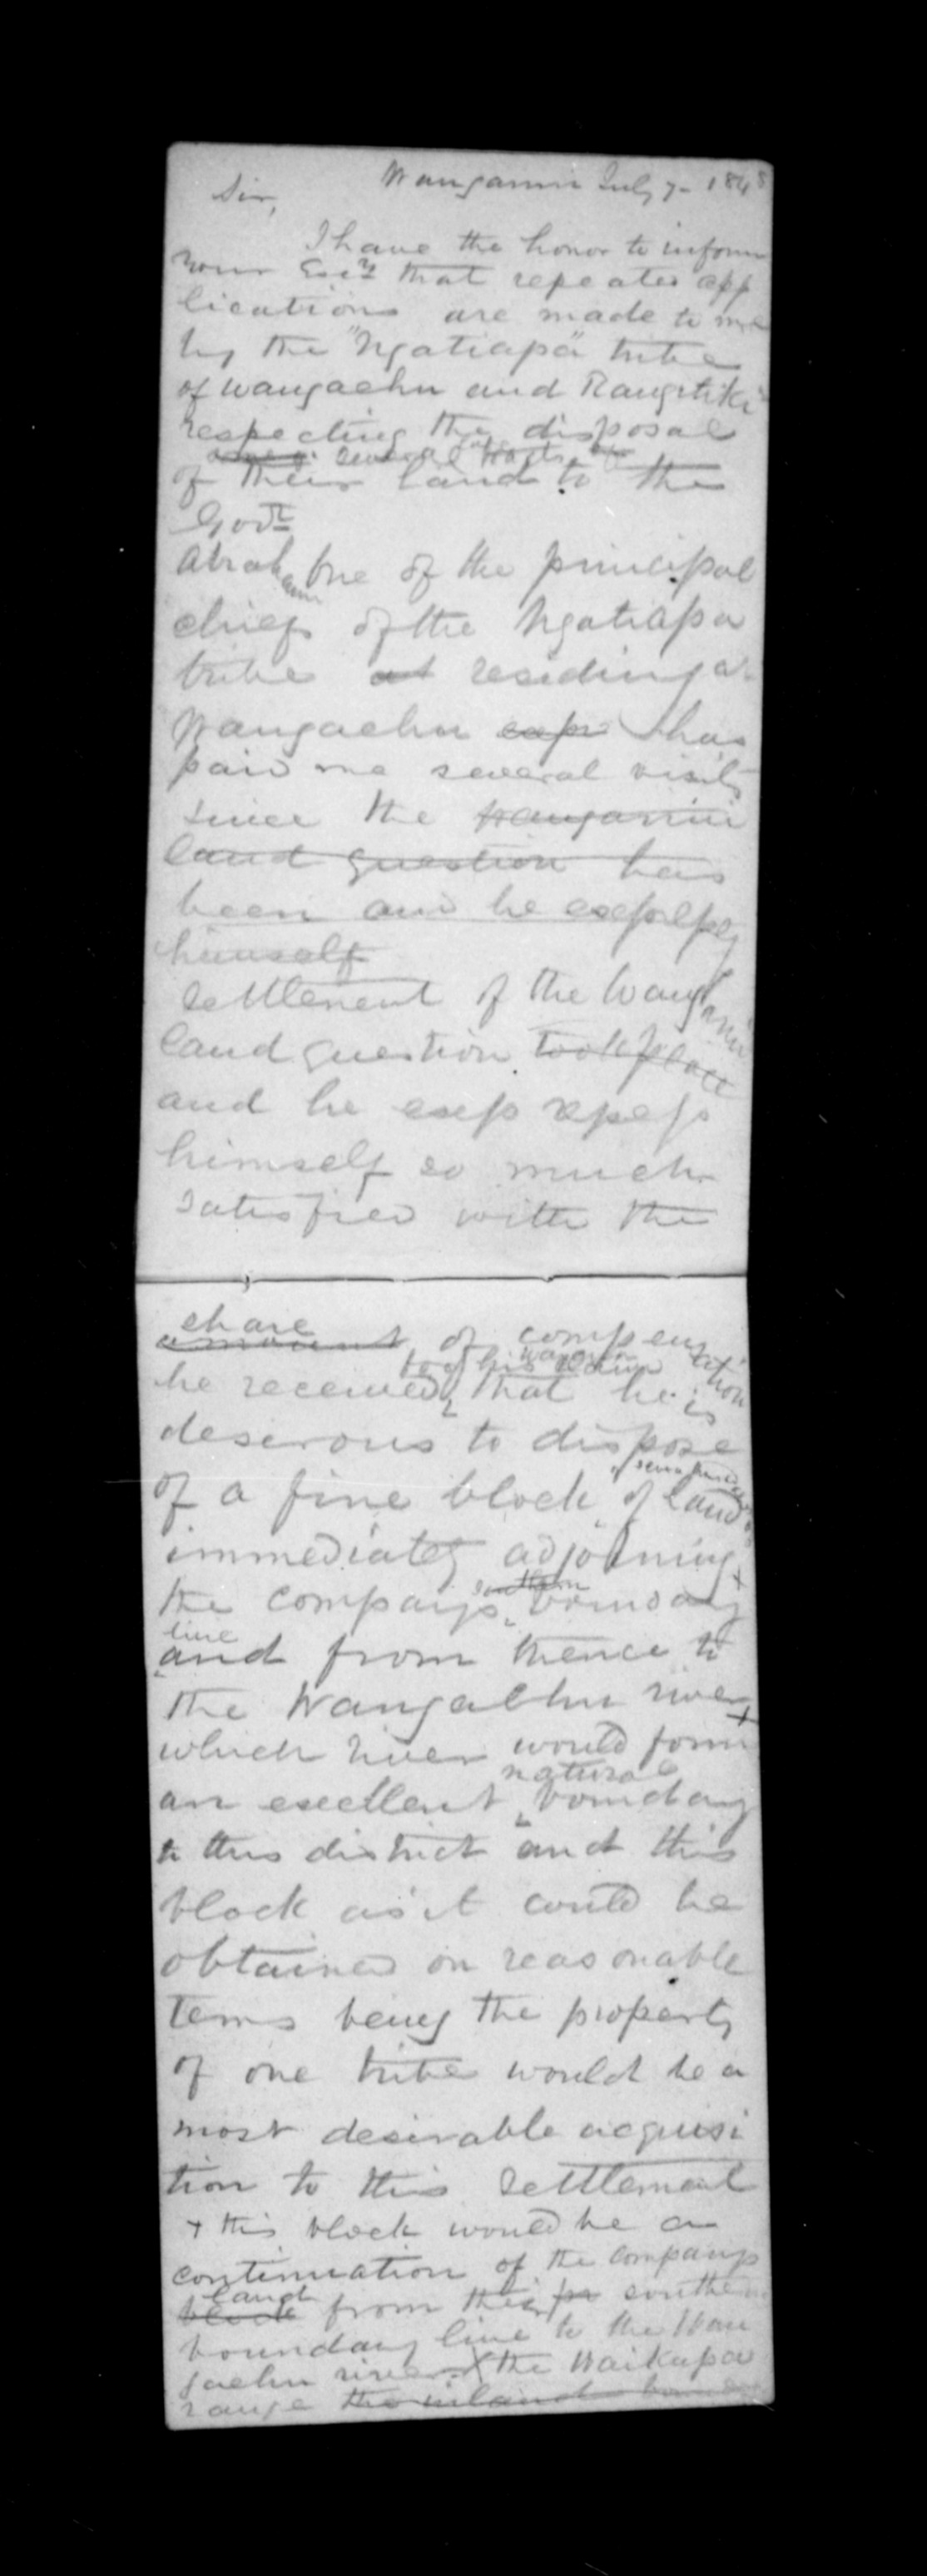 Wanganui July 7 - 1848
Sir,
I have the honor to inform
your Excy that repeated app
lications are made to me
by the "Ngatiapa" tribe
of Wangaehu and Rangitiki
respecting the disposal
several tracts of
of their land to the
Govt
Abraham one of the principal
chiefs of the Ngatiapa
tribe at residing at
Wangaehu exp has
paid me several visits
since the Wanganui
land question has
been and he
himself
settlement of the Wanganui
land question took place
and he
himself so much
satisfied with the
share
amount of compensation
he received, that he is
deserous to dispose
of a fine block of land
immediately adjoining
southern
the companys boundary
line
and from thence to
the Wangaehu river +
which river would form
natural
an excellent boundary
to this district and this
block as it could be
obtained on reasonable
terms being the property
of one tribe would be a
most desirable acquisi
tion to this settlement
+ this block would be a
continuation of the companys
land
block from their southern
boundary line to the Wan
gaehu river X the Waikupa
range the inland